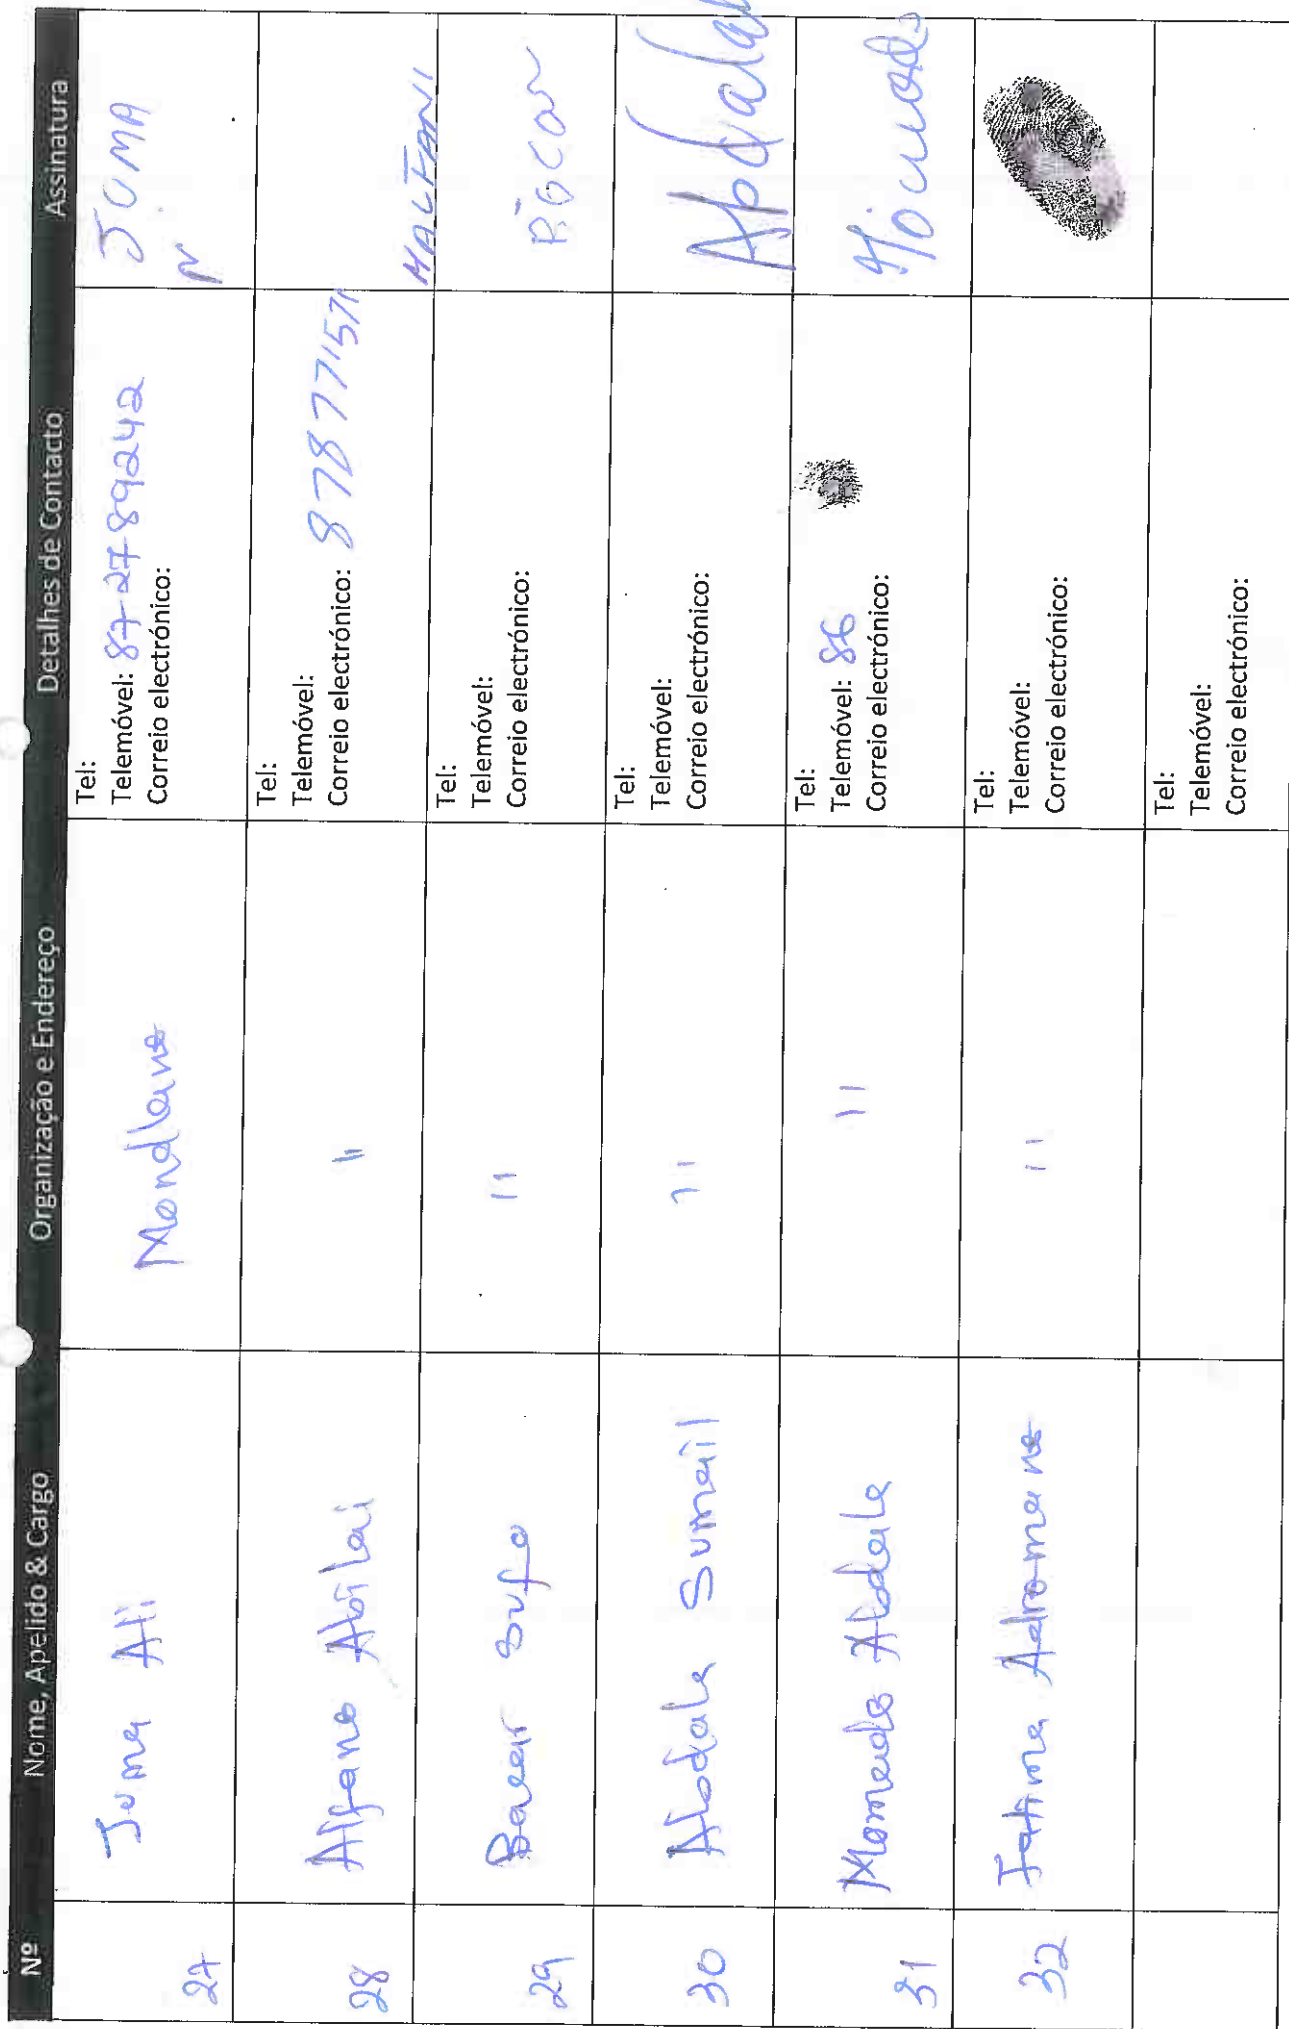 Nº Nome, Apelido & Cargo Organização e Endereço Detalhes de Contacto Assinatura
27 Juma Ali Mondlane Tel:
Telemóvel: 87 27 89242
Correio electrónico:
JUMA
N
28 Alfane Abilai 11 Tel:
Telemóvel:
Correio electrónico: 878771571
29 Sufo 11 Tel:
Telemóvel:
Correio electrónico:
30 Abdala Sumail 11 Tel:
Telemóvel:
Correio electrónico:
Abdala
31 Momade Abdala 11 Tel:
Telemóvel: 86
Correio electrónico:
32 Fatima Adromane 11 Tel:
Telemóvel:
Correio electrónico:
Tel:
Telemóvel:
Correio electrónico: